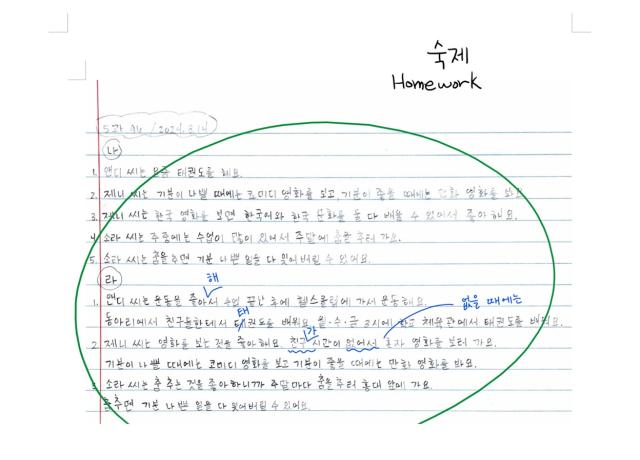 숙제
Homework
5과 94 / 2024. 3. 14
나
1. 앤디 씨는 요즘 태권도를 해요.
2. 제니 씨는 기분이 나쁠 때에는 코미디 영화를 보고, 기분이 좋을 때에는 만화 영화를 봐요.
3. 제니 씨는 한국 영화를 보면 한국어와 한국 문화를 둘 다 배울 수 있어서 좋아해요.
4. 소라 씨는 주중에는 수업이 많이 있어서 주말에 춤을 추러 가요.
5. 소라 씨는 춤을 추면 기분 나쁜 일을 다 잊어버릴 수 있어요.
해
라
1. 앤디 씨는 운동을 좋아서 수업 끝난 후에 헬스클럽에 가서 운동해요.
없을 때에는
태
동아리에서 친구들한테서 태권도를 배워요 월·수·금 3시에 학교 체육관에서 태권도를 배워요.
가
2. 제니 씨는 영화를 보는 것을 좋아해요. 친구 시간이 없어서 혼자 영화를 보러 가요.
기분이 나쁠 때에는 코미디 영화를 보고 기분이 좋을 때에는 만화 영화를 봐요.
3. 소라 씨는 춤 추는 것을 좋아하니까 주말마다 춤을 추러 홍대 앞에 가요.
춤추면 기분 나쁜 일을 다 잊어버릴 수 있어요.